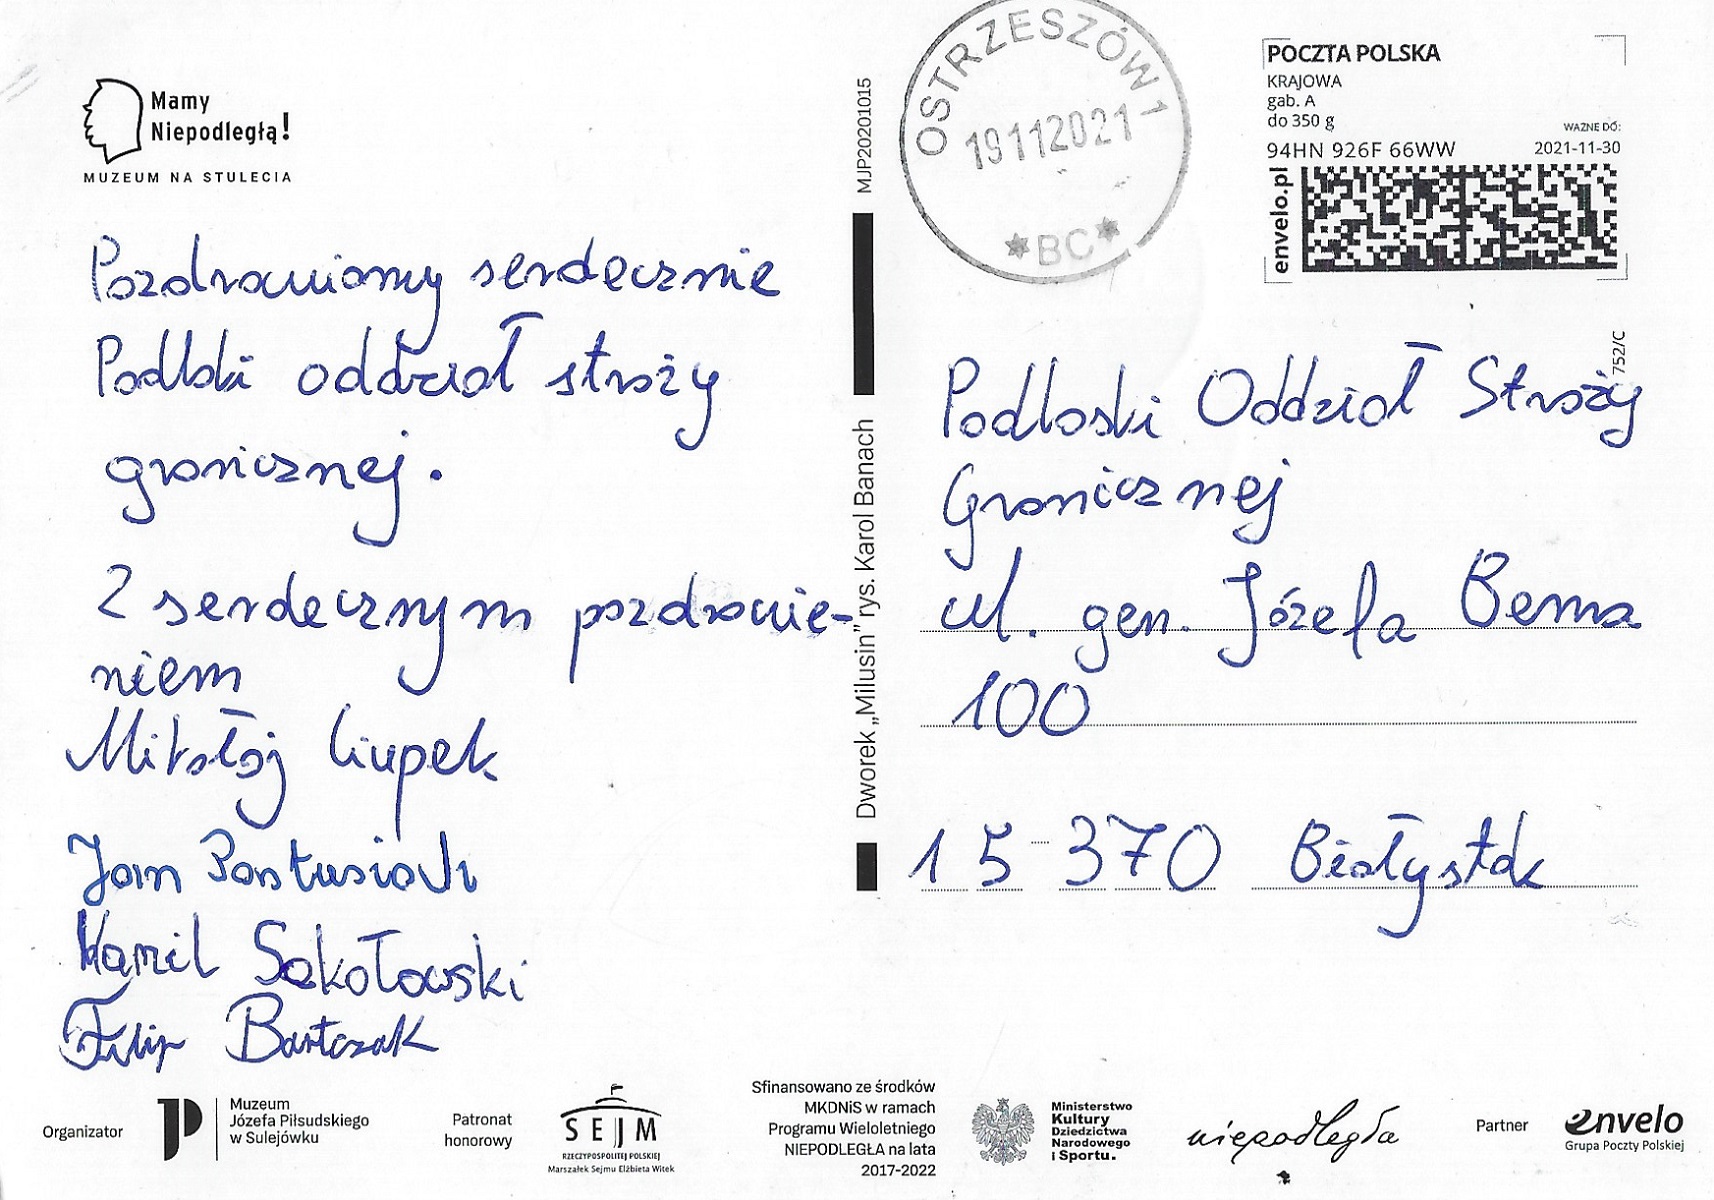 Mamy
Niepodległą!
MUZEUM NA STULECIA
Pozdrawiamy serdecznie
Podlaski oddział straży
granicznej.
Z serdecznym pozdrowie-
niem
Mikołaj Ciupek
Jan Pastusiak
Kamil Sokołowski
Filip Bartczak
MJP20201015
Dworek „Milusin” rys. Karol Banach
OSTRZESZÓW 1
19112021
*BC*
POCZTA POLSKA
KRAJOWA
gab. A
do 350 g
WAŻNE DO:
94HN 926F 66WW 2021-11-30
envelo.pl
752/C
Podlaski Oddział Straży
Granicznej
ul. gen. Józefa Bema
100
15-370 Białystok
Organizator
Muzeum
Józefa Piłsudskiego
w Sulejówku
Patronat
honorowy
SEJM
RZECZYPOSPOLITEJ POLSKIEJ
Marszałek Sejmu Elżbieta Witek
Sfinansowano ze środków
MKDNiS w ramach
Programu Wieloletniego
NIEPODLEGŁA na lata
2017-2022
Ministerstwo
Kultury
Dziedzictwa
Narodowego
i Sportu.
niepodległa
Partner
envelo
Grupa Poczty Polskiej